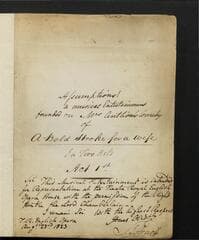 Assumptions!
a musical Entertainment
founded on Mrs Centlivre's comedy
of
A Bold Stroke for a Wife
In Two Acts
Act 1st
Sir This Musical Entertainment is intended
for Representation at the Theatre Royal English
Opera House with the permission of the Right
Honble the Lord Chamberlain
I remain Sir With the highest Respect
T. R. English Opera
Augt 23rd 1823